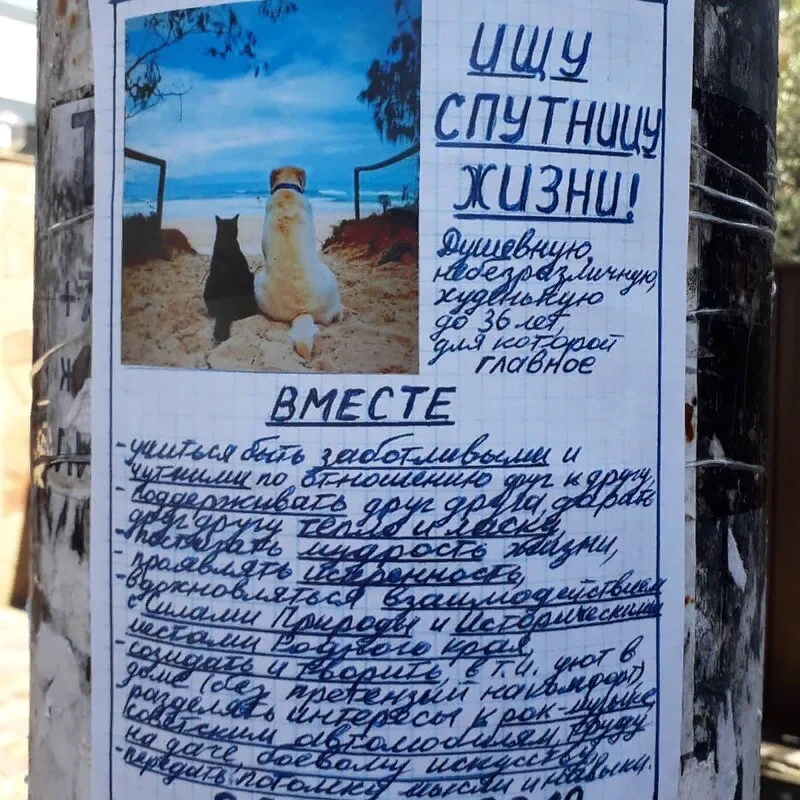 ИЩУ
СПУТНИЦУ
ЖИЗНИ!
Душевную,
небезразличную,
худенькую
до 36 лет,
для которой
главное
ВМЕСТЕ
- учиться быть заботливыми и
чуткими по отношению друг к другу,
- поддерживать друг друга, дарить
друг другу тепло и ласку,
- постигать мудрость жизни,
- проявлять искренность,
- вдохновляться взаимодействием
с Силами Природы и Историческими
местами Родного края,
- созидать и творить, в т.ч. уют в
доме (без претензий на комфорт)
разделять интересы к рок-музыке,
советским автомобилям, труду
на даче, боевому искусству,
- передать потомку мысли и навыки.